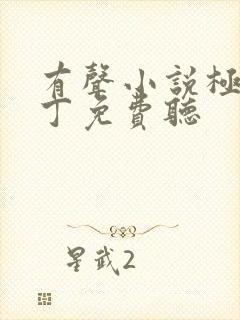 有聲小說極
丁免費聽
星武2